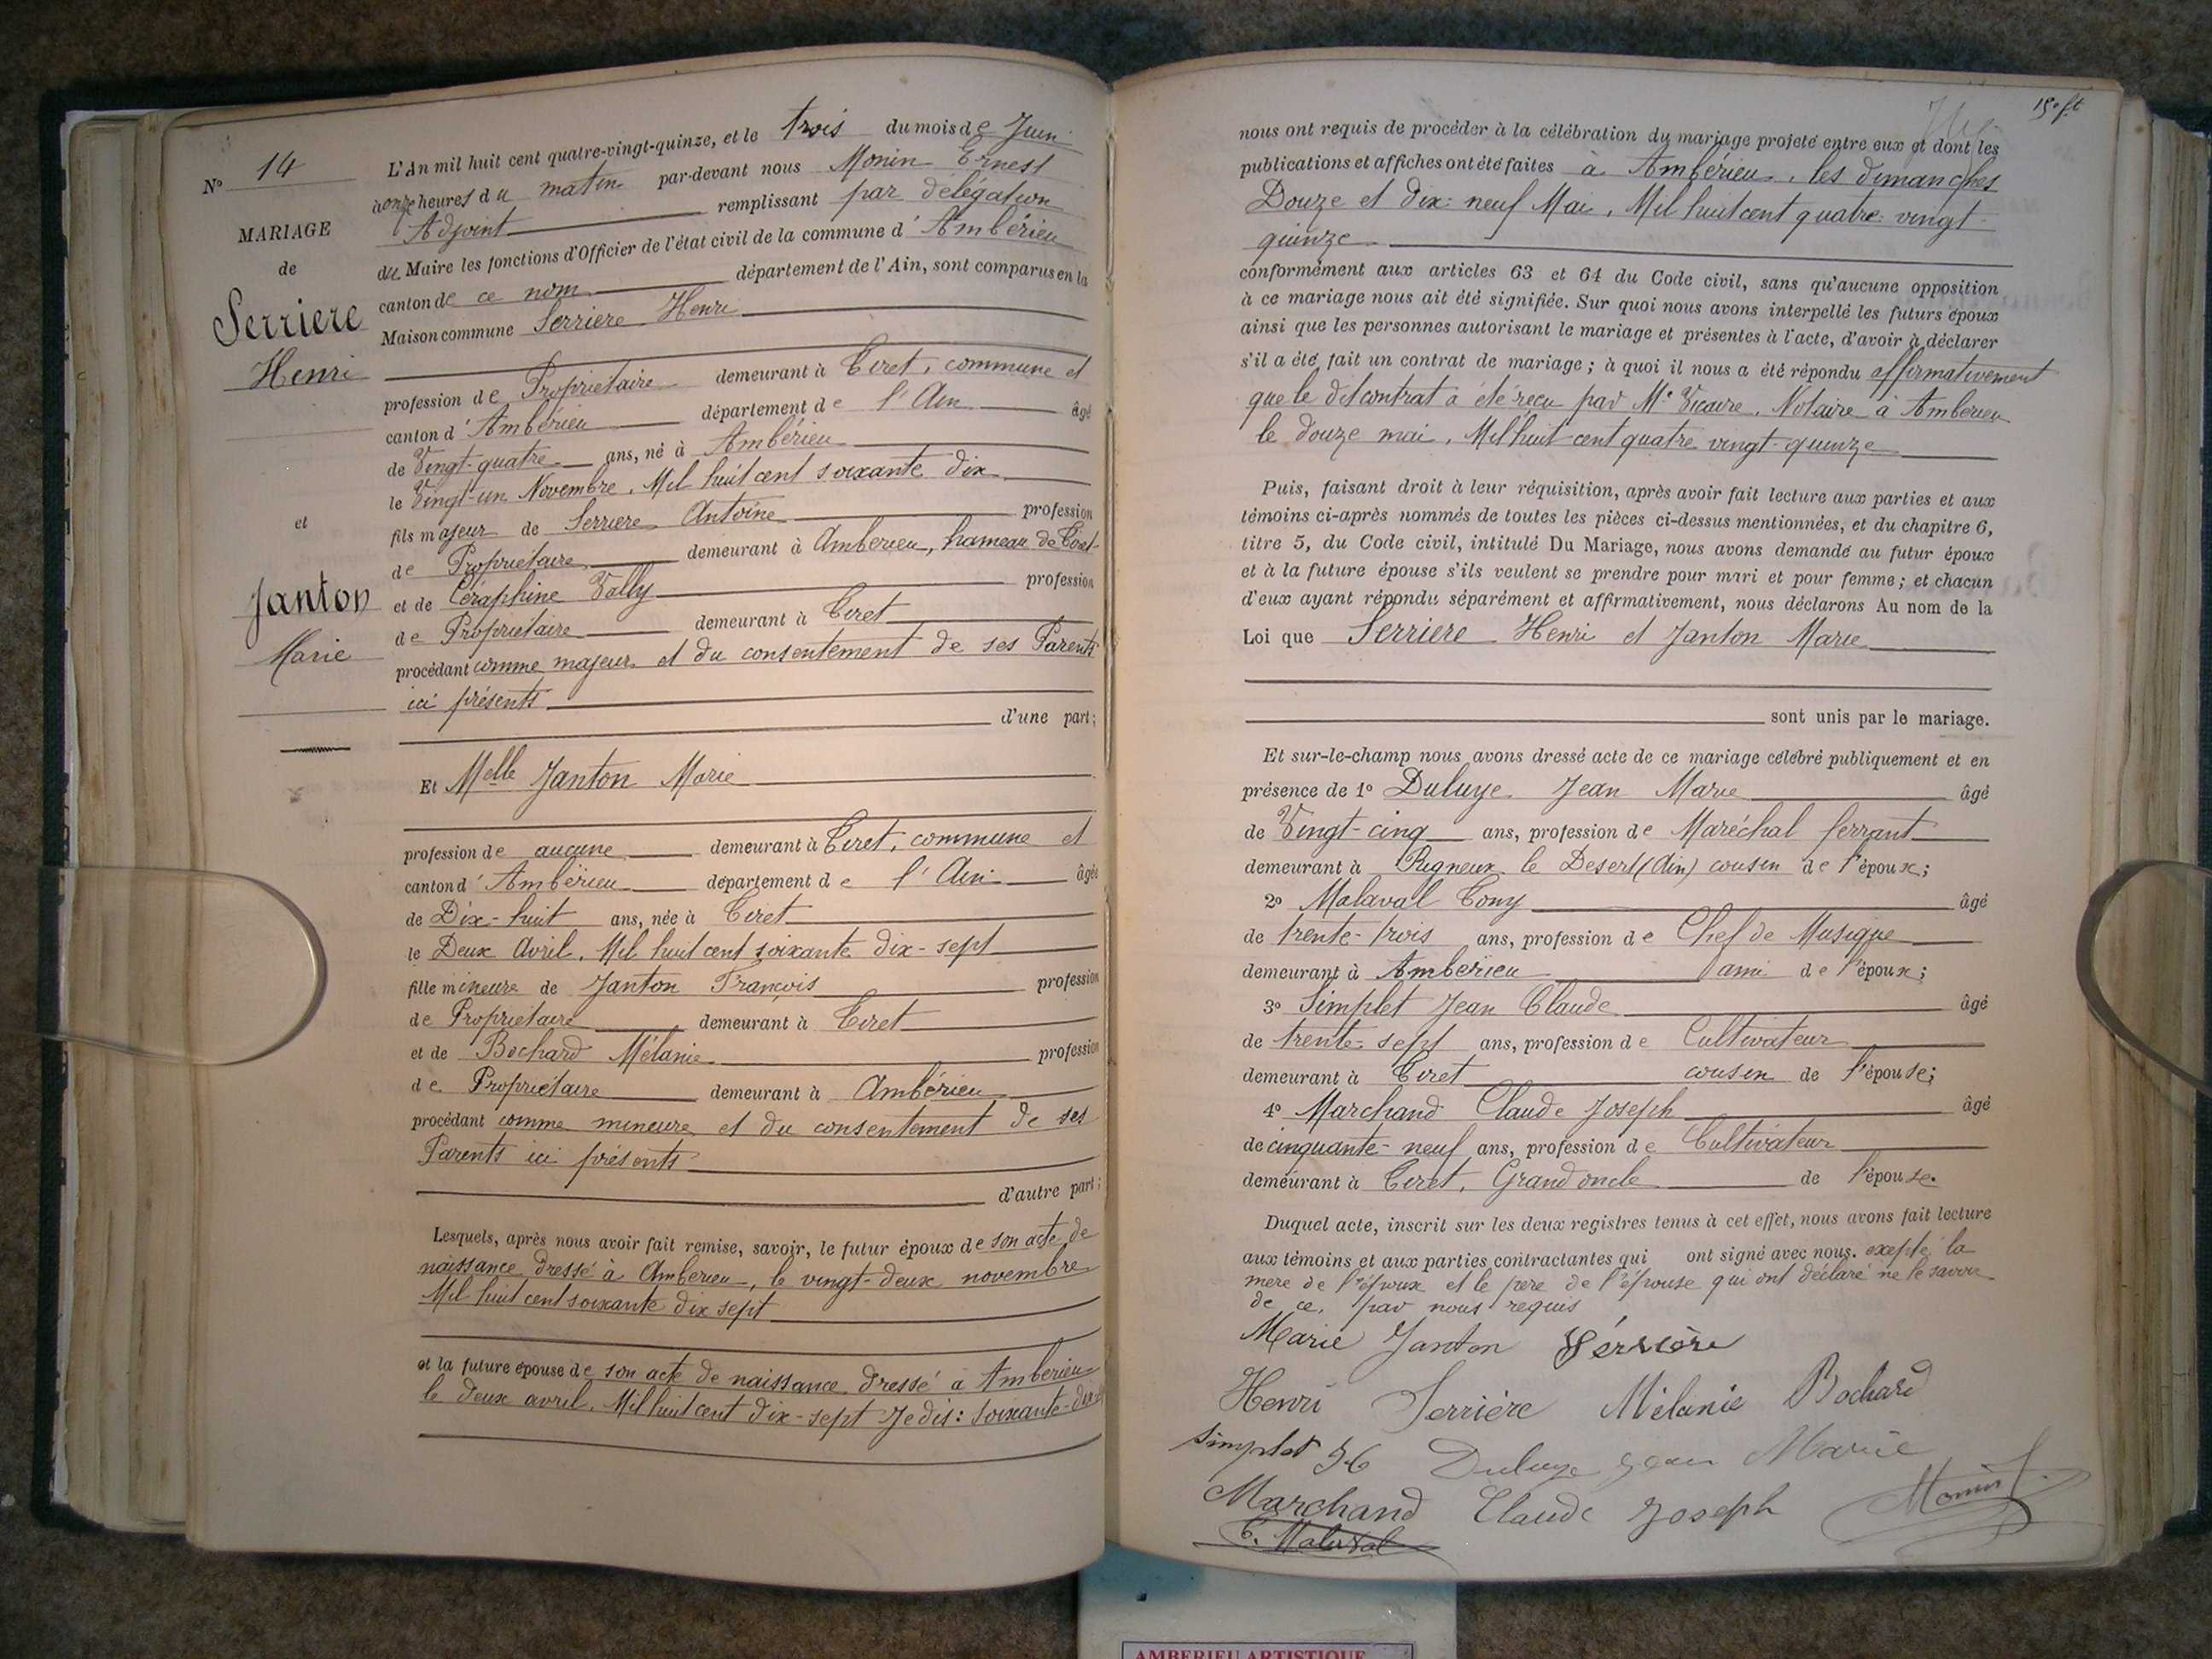 N° 14
MARIAGE
de
Serriere
Henri
et
Janton
Marie
L'An mil huit cent quatre-vingt-quinze, et le trois du mois de Juin
à onze heures du matin par-devant nous Monin Ernest
Adjoint remplissant par délégation
du Maire les fonctions d'Officier de l'état civil de la commune d'Ambérieu
canton de ce nom département de l'Ain, sont comparus en la
Maison commune Serriere Henri
profession de Propriétaire demeurant à Tiret, commune et
canton d'Ambérieu département de l'Ain âgé
de Vingt-quatre ans, né à Ambérieu
le Vingt-un Novembre, Mil huit cent soixante dix
fils majeur de Serriere Antoine profession
de Propriétaire demeurant à Ambérieu, hameau de Tiret
et de Céraphine Vally profession
de Propriétaire demeurant à Tiret
procédant comme majeur et du consentement de ses Parents
ici présents
d'une part;
Et Melle Janton Marie
profession de aucune demeurant à Tiret, commune et
canton d'Ambérieu département de l'Ain âgée
de Dix-huit ans, née à Tiret
le Deux Avril, Mil huit cent soixante dix-sept
fille mineure de Janton François profession
de Propriétaire demeurant à Tiret
et de Bochard Mélanie profession
de Propriétaire demeurant à Ambérieu
procédant comme mineure et du consentement de ses
Parents ici présents
d'autre part;
Lesquels, après nous avoir fait remise, savoir, le futur époux de son acte de
naissance dressé à Ambérieu, le vingt-deux novembre
Mil huit cent soixante dix sept
et la future épouse de son acte de naissance dressé à Ambérieu
le deux avril, Mil huit cent dix-sept Je dis: soixante-dix
15e ft
nous ont requis de procéder à la célébration du mariage projeté entre eux et dont les
publications et affiches ont été faites à Ambérieu, les dimanches
Douze et dix-neuf Mai, Mil huit cent quatre-vingt
quinze
conformément aux articles 63 et 64 du Code civil, sans qu'aucune opposition
à ce mariage nous ait été signifiée. Sur quoi nous avons interpellé les futurs époux
ainsi que les personnes autorisant le mariage et présentes à l'acte, d'avoir à déclarer
s'il a été fait un contrat de mariage; à quoi il nous a été répondu affirmativement
que le dit contrat a été reçu par Me Vicaire, Notaire à Ambérieu
le douze mai, Mil huit cent quatre vingt-quinze
Puis, faisant droit à leur réquisition, après avoir fait lecture aux parties et aux
témoins ci-après nommés de toutes les pièces ci-dessus mentionnées, et du chapitre 6,
titre 5, du Code civil, intitulé Du Mariage, nous avons demandé au futur époux
et à la future épouse s'ils veulent se prendre pour mari et pour femme; et chacun
d'eux ayant répondu séparément et affirmativement, nous déclarons Au nom de la
Loi que Serriere Henri et Janton Marie
sont unis par le mariage.
Et sur-le-champ nous avons dressé acte de ce mariage célébré publiquement et en
présence de 1° Duluye Jean Marie âgé
de Vingt-cinq ans, profession de Maréchal ferrant
demeurant à Rigneux le Desert (Ain) cousin de l'époux;
2° Malaval Tony âgé
de trente-trois ans, profession de Chef de Musique
demeurant à Ambérieu ami de l'époux;
3° Simplet Jean Claude âgé
de trente-sept ans, profession de Cultivateur
demeurant à Tiret cousin de l'épouse;
4° Marchand Claude Joseph âgé
de cinquante-neuf ans, profession de Cultivateur
demeurant à Tiret, Grand oncle de l'épouse.
Duquel acte, inscrit sur les deux registres tenus à cet effet, nous avons fait lecture
aux témoins et aux parties contractantes qui ont signé avec nous. excepté la
mere de l'époux et le pere de l'épouse qui ont déclaré ne le savoir
de ce, par nous requis
Marie Janton Sérrière
Henri Serrière Mélanie Bochard
Simplet Duluye Jean Marie
Marchand Claude Joseph Monin
T. Malaval
AMBERIEU ARTISTIQUE